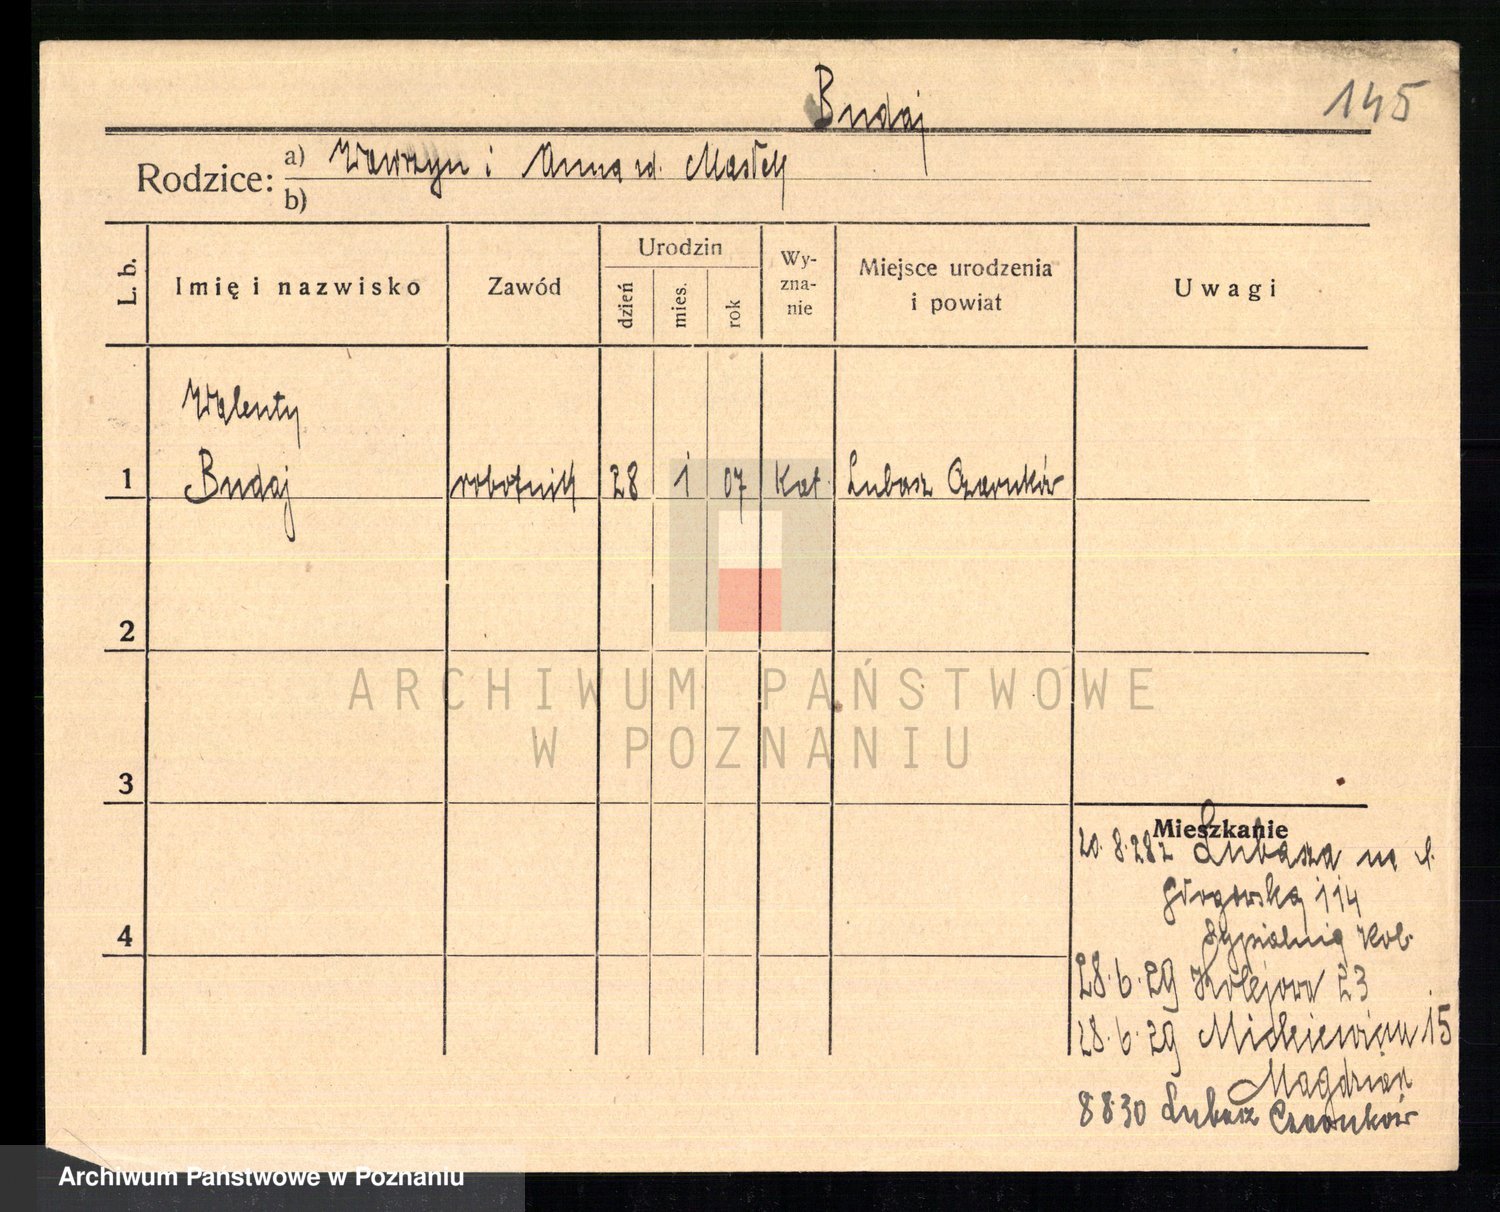 Budaj
145
Rodzice: a) Wawrzyn i Anna
b)
L. b.
Imię i nazwisko
Zawód
Urodzin
dzień
mies.
rok
Wy-
zna-
nie
Miejsce urodzenia
i powiat
Uwagi
Walenty
1 Budaj robotnik 28 1 07 Kat. Lubasz Czarnków
2
ARCHIWUM PAŃSTWOWE
W POZNANIU
3
Mieszkanie
20.8.28 z Lubasza na
Głogowska 114
Sypialnia Kol.
4
28.6.29 Kolejowa 23
28.6.29 Mickiewicza 15
8 8 30 Lubasz Czarnków
Archiwum Państwowe w Poznaniu